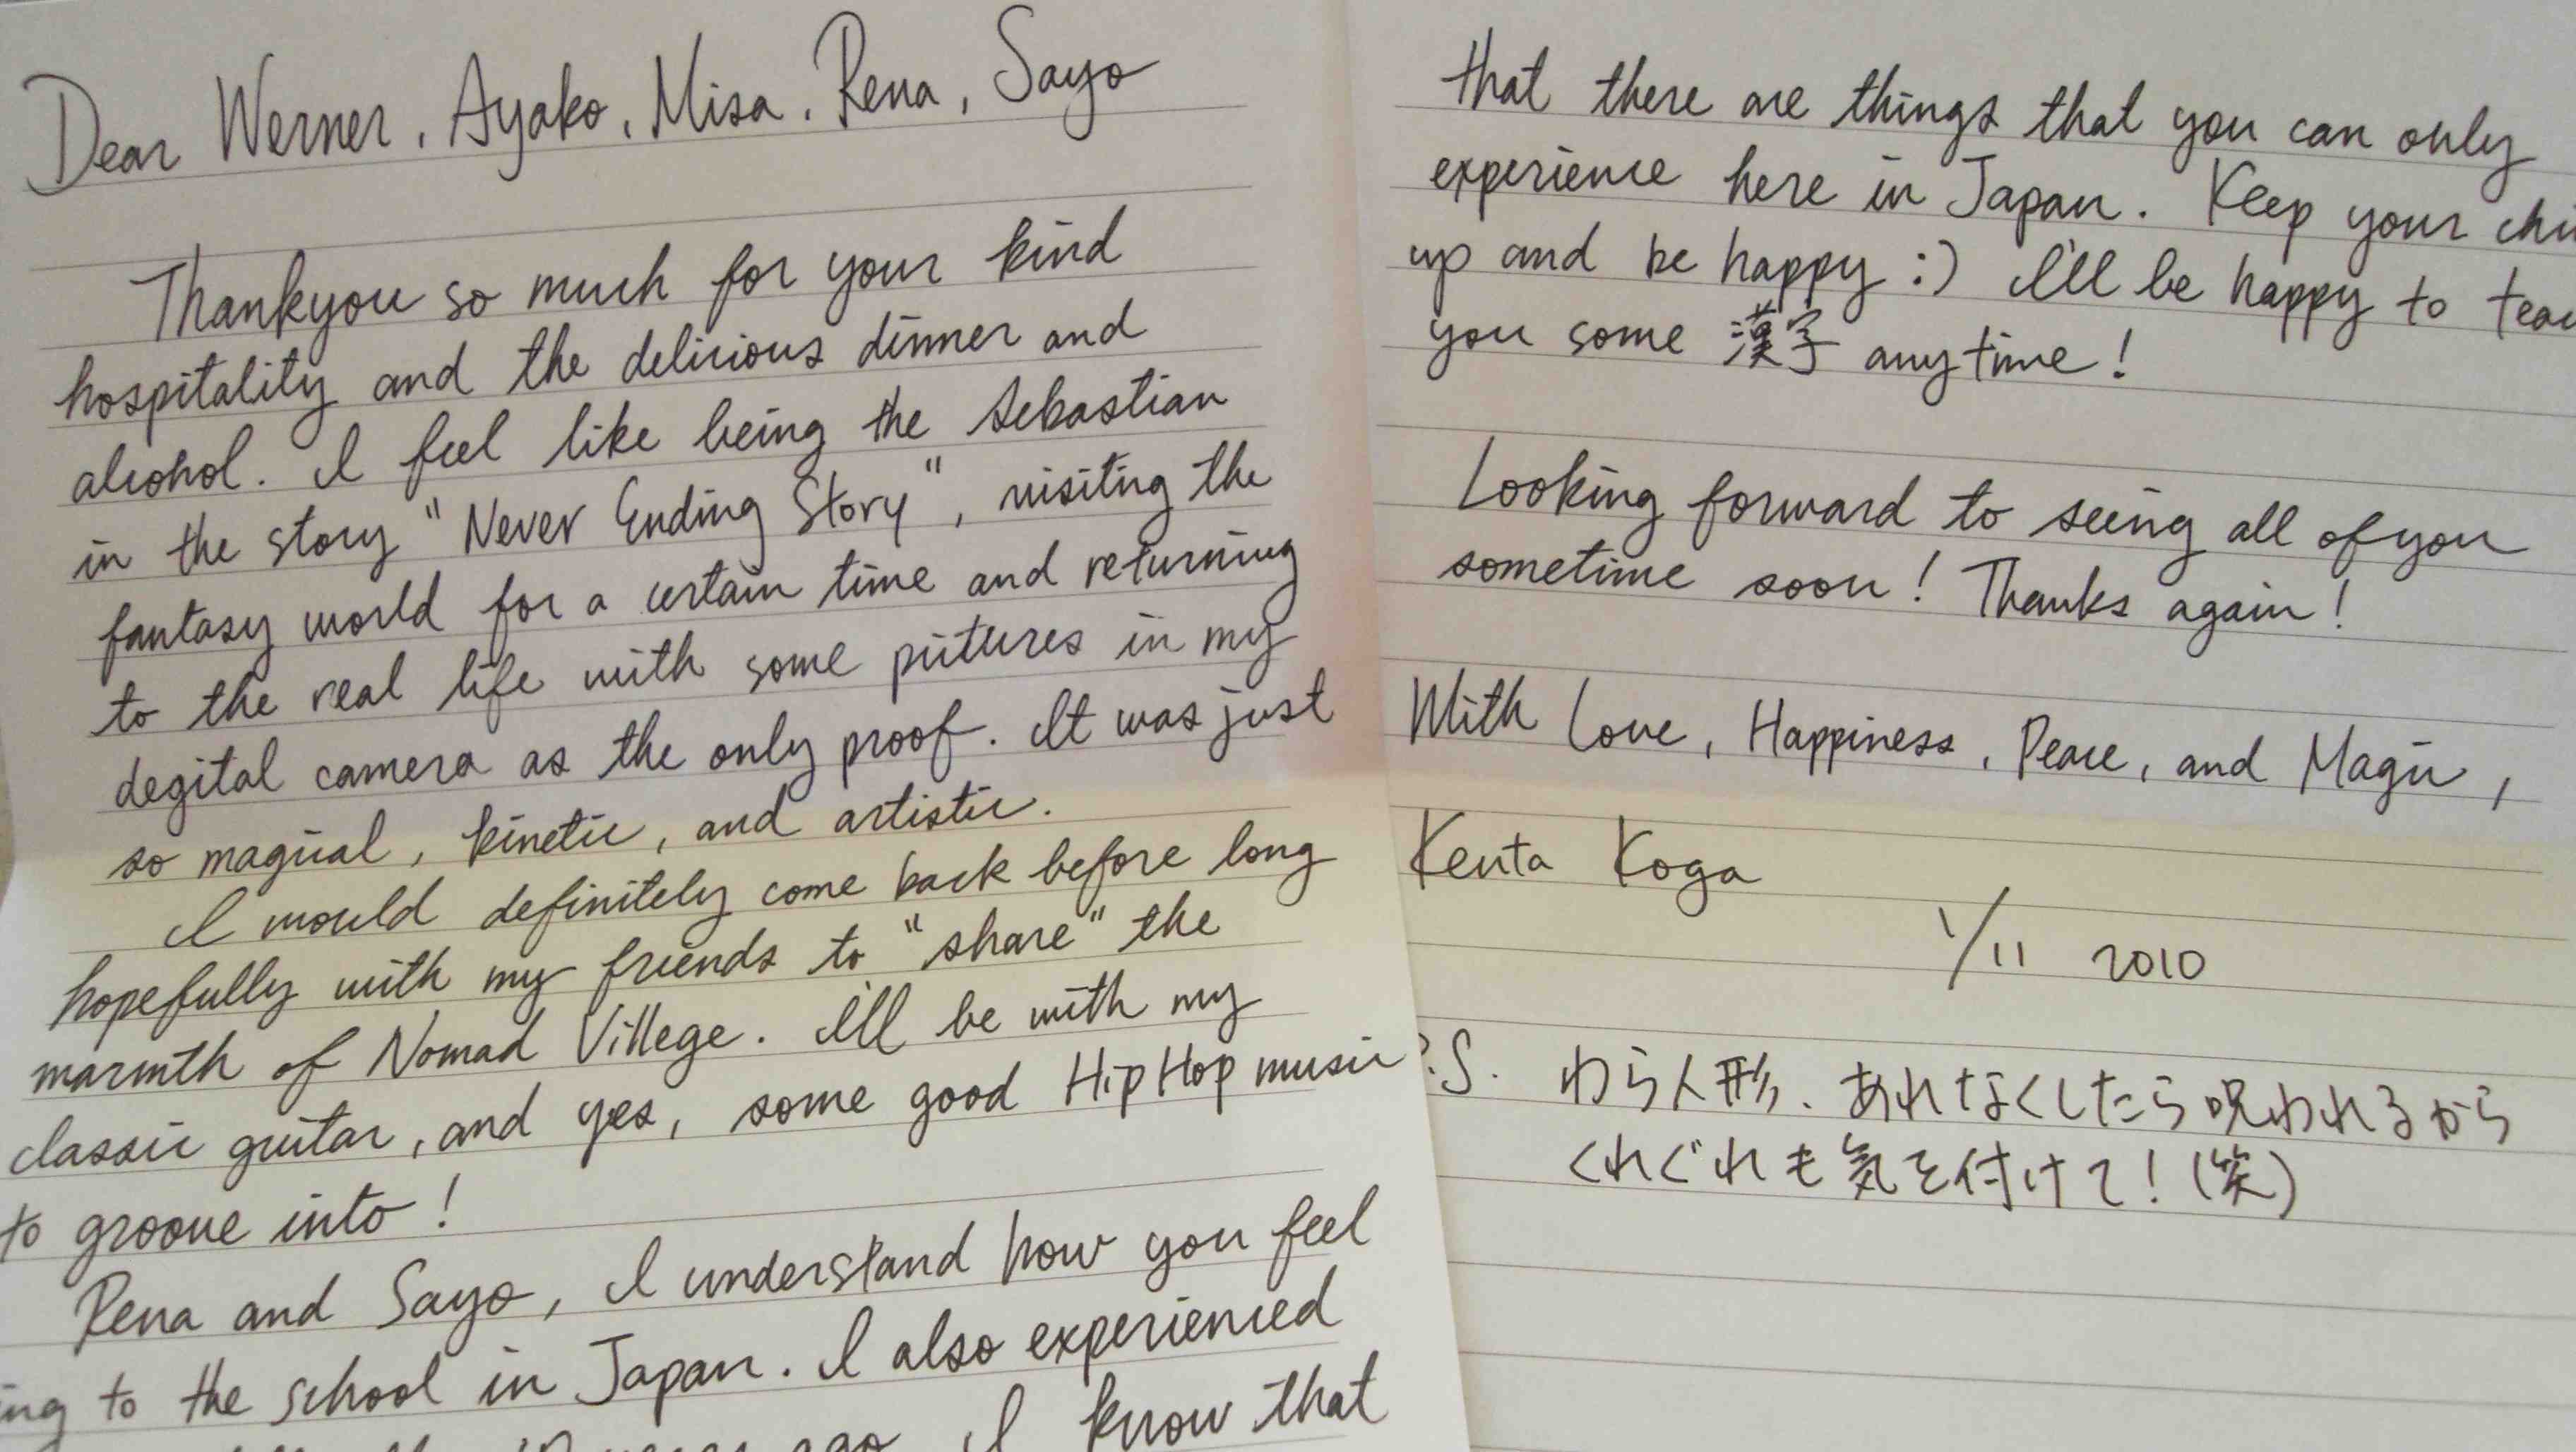 Dear Werner, Ayako, Misa, Rena, Sayo
Thankyou so much for your kind
hospitality and the delicious dinner and
alcohol. I feel like being the Sebastian
in the story "Never Ending Story", visiting the
fantasy world for a certain time and returning
to the real life with some pictures in my
degital camera as the only proof. It was just
so magical, kinetic, and artistic.
I would definitely come back before long
hopefully with my friends to "share" the
warmth of Nomad Villege. I'll be with my
classic guitar, and yes, some good HipHop music
to groove into!
Rena and Sayo, I understand how you feel
ing to the school in Japan. I also experienced
years ago. I know that
that there are things that you can only
experience here in Japan. Keep your chi
up and be happy :) I'll be happy to teac
you some 漢字 anytime!
Looking forward to seeing all of you
sometime soon! Thanks again!
With Love, Happiness, Peace, and Magic,
Kenta Koga
1/11 2010
P.S. わら人形、あれなくしたら呪われるから
くれぐれも気を付けて!(笑)